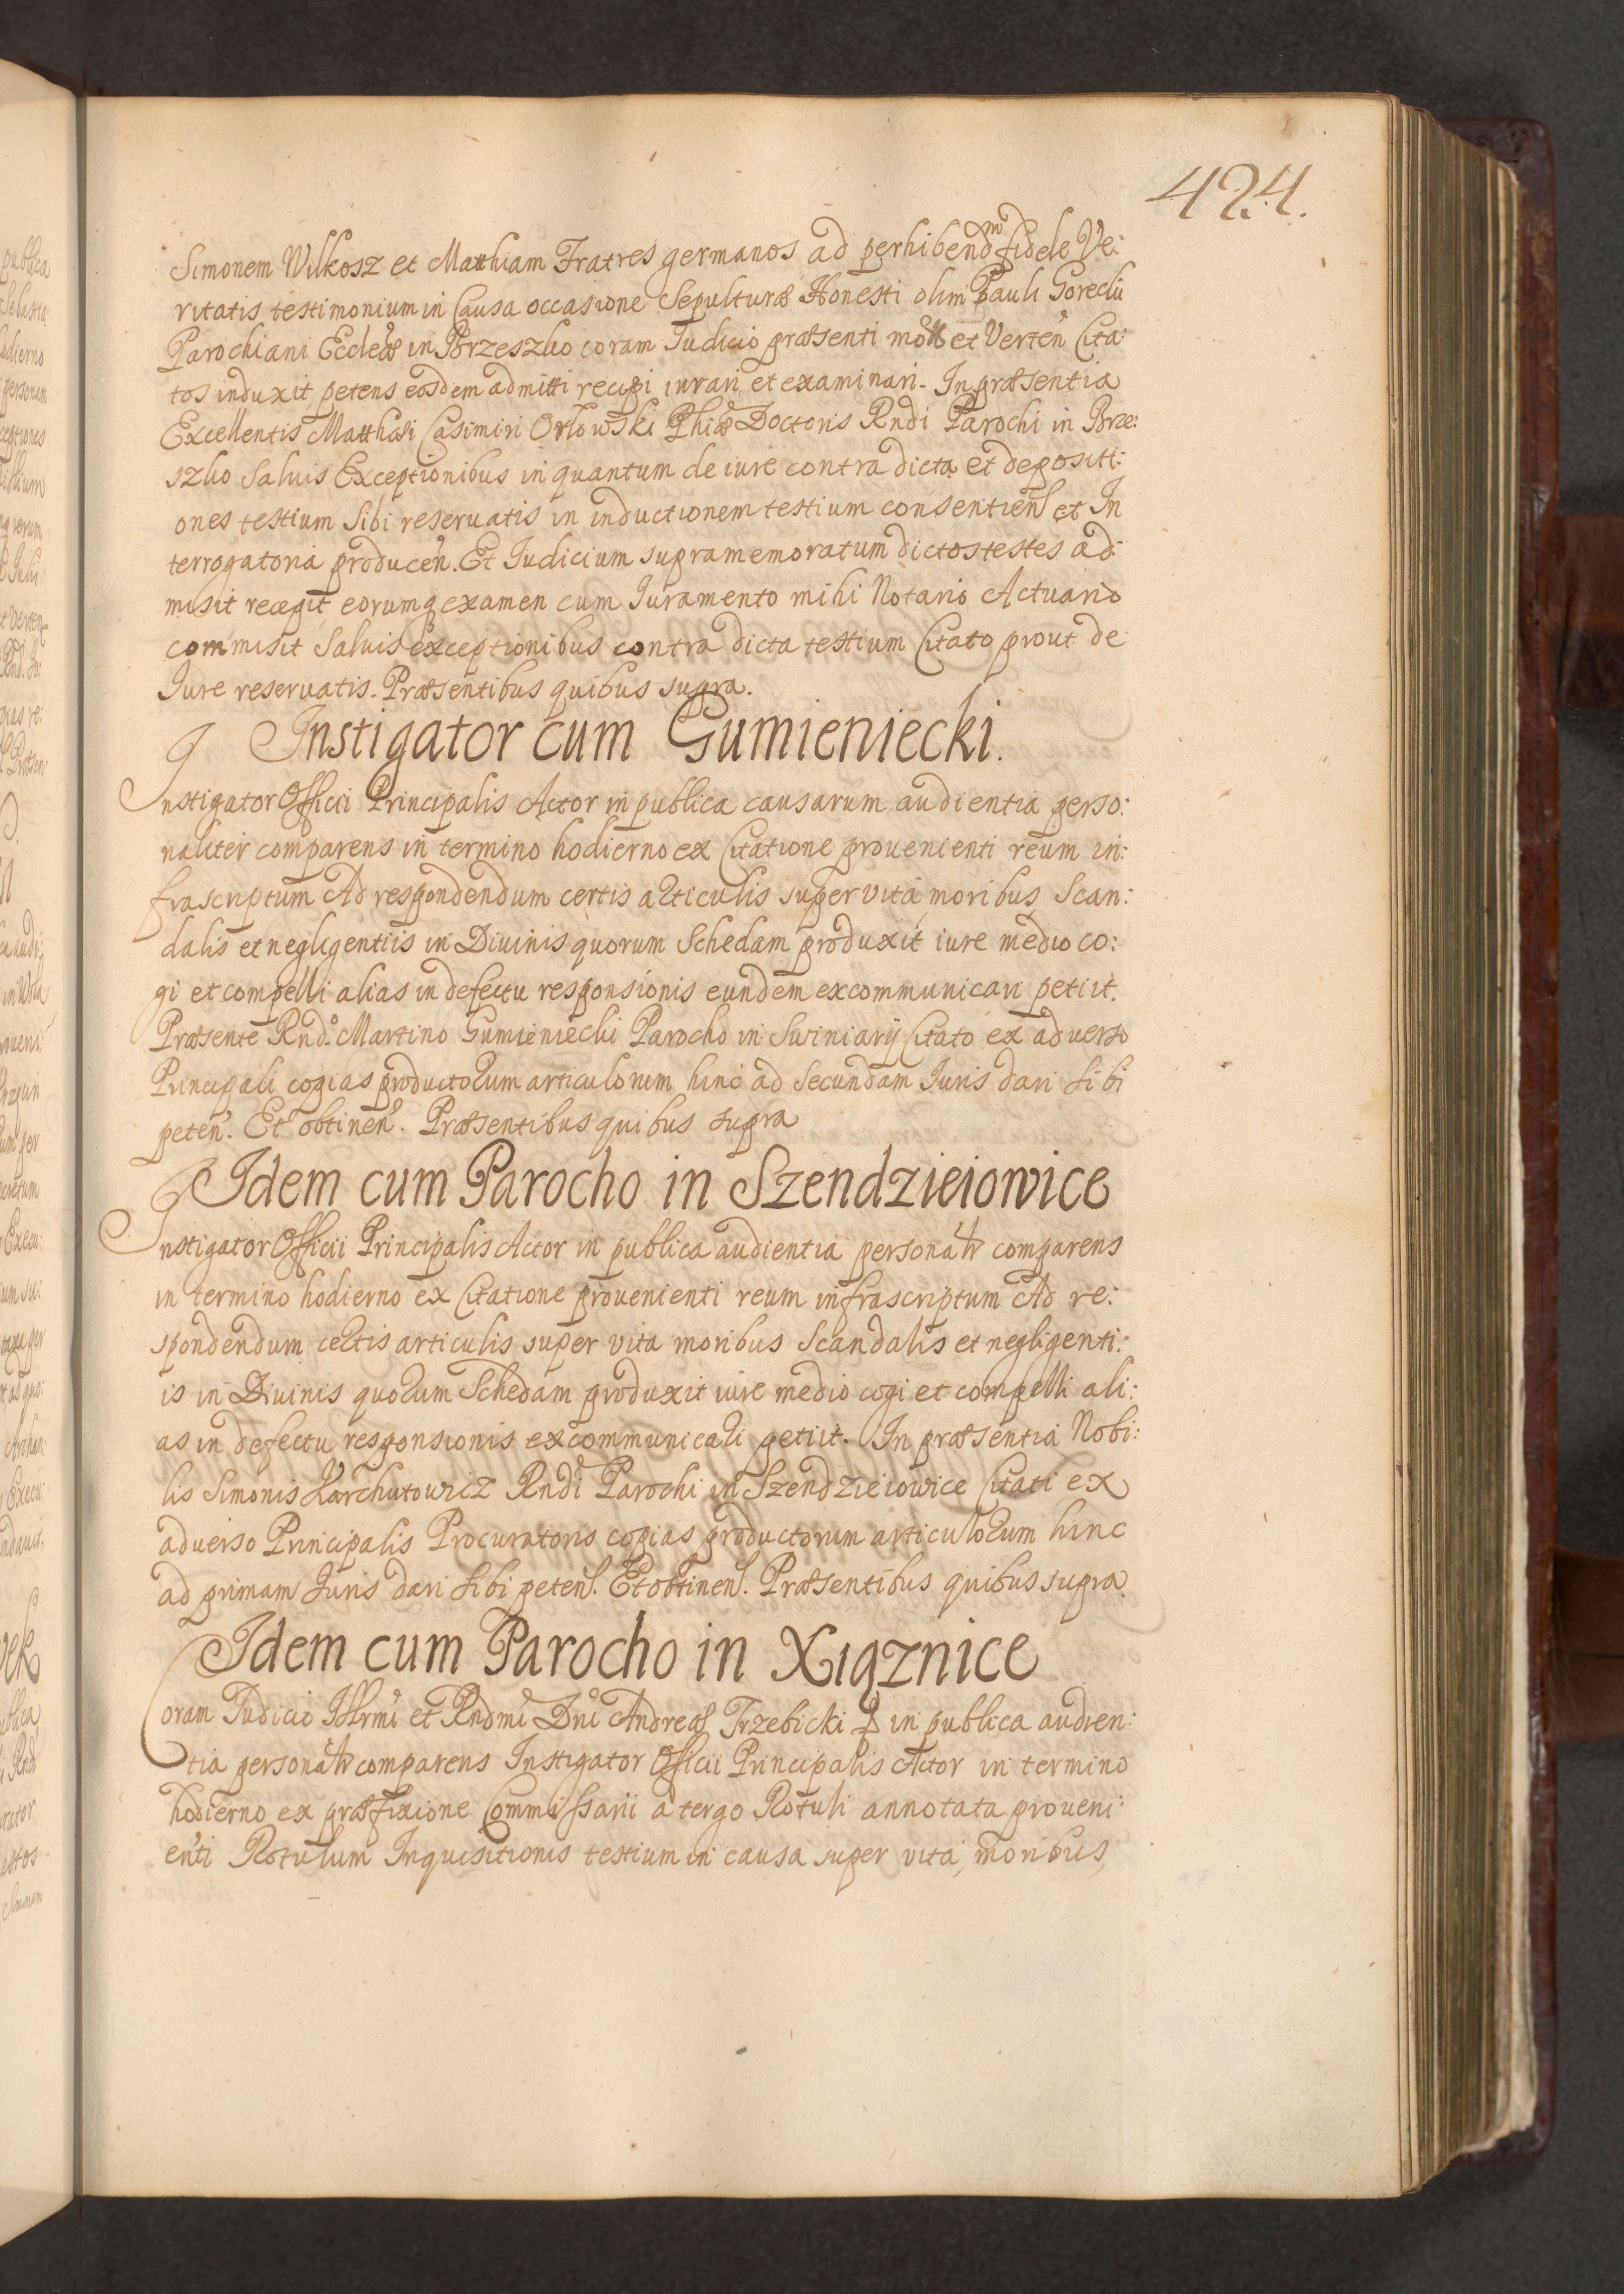 424.
Simonem Wilkosz et Matthiam Fratres germanos ad perhibend fidele Ve:
ritatis testimonium in Causa occasione Sepulturæ Honesti olim Pauli Gorecki
Parochiani Eccleæ in Brzeszko coram Iudicio præsenti et Verten Cita:
tos induxit petens eosdem admitti recipi iurari et examinari. In præsentia
Excellentis Matthæi Casimiri Orłowski Phiæ Doctoris Rndi Parochi in Brze:
szko Saluis Exceptionibus in quantum de iure contra dicta et depositi:
ones testium Sibi reseruatis in inductionem testium consentien et In
terrogatoria producen. Et Iudicium supramemoratum dictos testes ad:
misit recepit eorumq examen cum Iuramento mihi Notario Actuario
commisit Saluis exceptionibus contra dicta testium Citato prout de
Iure reseruatis. Præsentibus quibus supra.
Instigator cum Gumieniecki.
Instigator Officii Principalis Actor in publica causarum audientia perso:
naliter comparens in termino hodierno ex Citatione prouenienti reum in:
frascriptum Ad respondendum certis articulis super vita, moribus, Scan:
dalis et negligentiis in Diuinis quorum Schedam produxit iure medio co:
gi et compelli alias in defectu responsionis eundem excommunicari petiit.
Præsente Rndo Martino Gumieniecki Parocho in Swiniary Citato ex aduerso
Principali copias productorum articulorum hinc ad Secundam Iuris dari sibi
peten. Et obtinen. Præsentibus quibus supra
Idem cum Parocho in Szendzieiowice
Instigator Officii Principalis Actor in publica audientia personalr comparens
in termino hodierno ex Citatione prouenienti reum infrascriptum Ad re:
spondendum certis articulis super vita moribus Scandalis et negligenti:
is in Diuinis quorum Schedam produxit iure medio cogi et compelli ali:
as in defectu responsionis excommunicari petiit. In præsentia Nobi:
lis Simonis Karchutowicz Rndi Parochi in Szendzieiowice Citati ex
aduerso Principalis Procuratoris copias productorum articulorum hinc
ad primam Iuris dari sibi peten. Et obtinen. Præsentibus quibus supra
Idem cum Parocho in Xiąznice
Coram Iudicio Illrmi et Rndmi Dni Andreæ Trzebicki in publica audien:
tia personalr comparens Instigator Officii Principalis Actor in termino
hodierno ex præfixione Commissarii a tergo Rotuli annotata proueni:
enti Rotulum Inquisitionis testium in causa super vita, moribus,